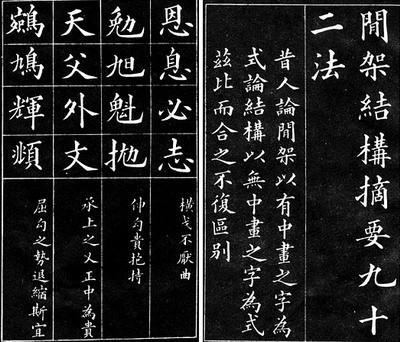 閒架結構摘要九十
二法
昔人論閒架以有中畫之字為
式論結構以無中畫之字為式
茲比而合之不復區別
恩息必志
橫戈不厭曲
勉旭魁拋
伸勾貴抱持
天父外丈
承上之乂正中為貴
鵷鳩輝頫
屈勾之勢退縮斯宜